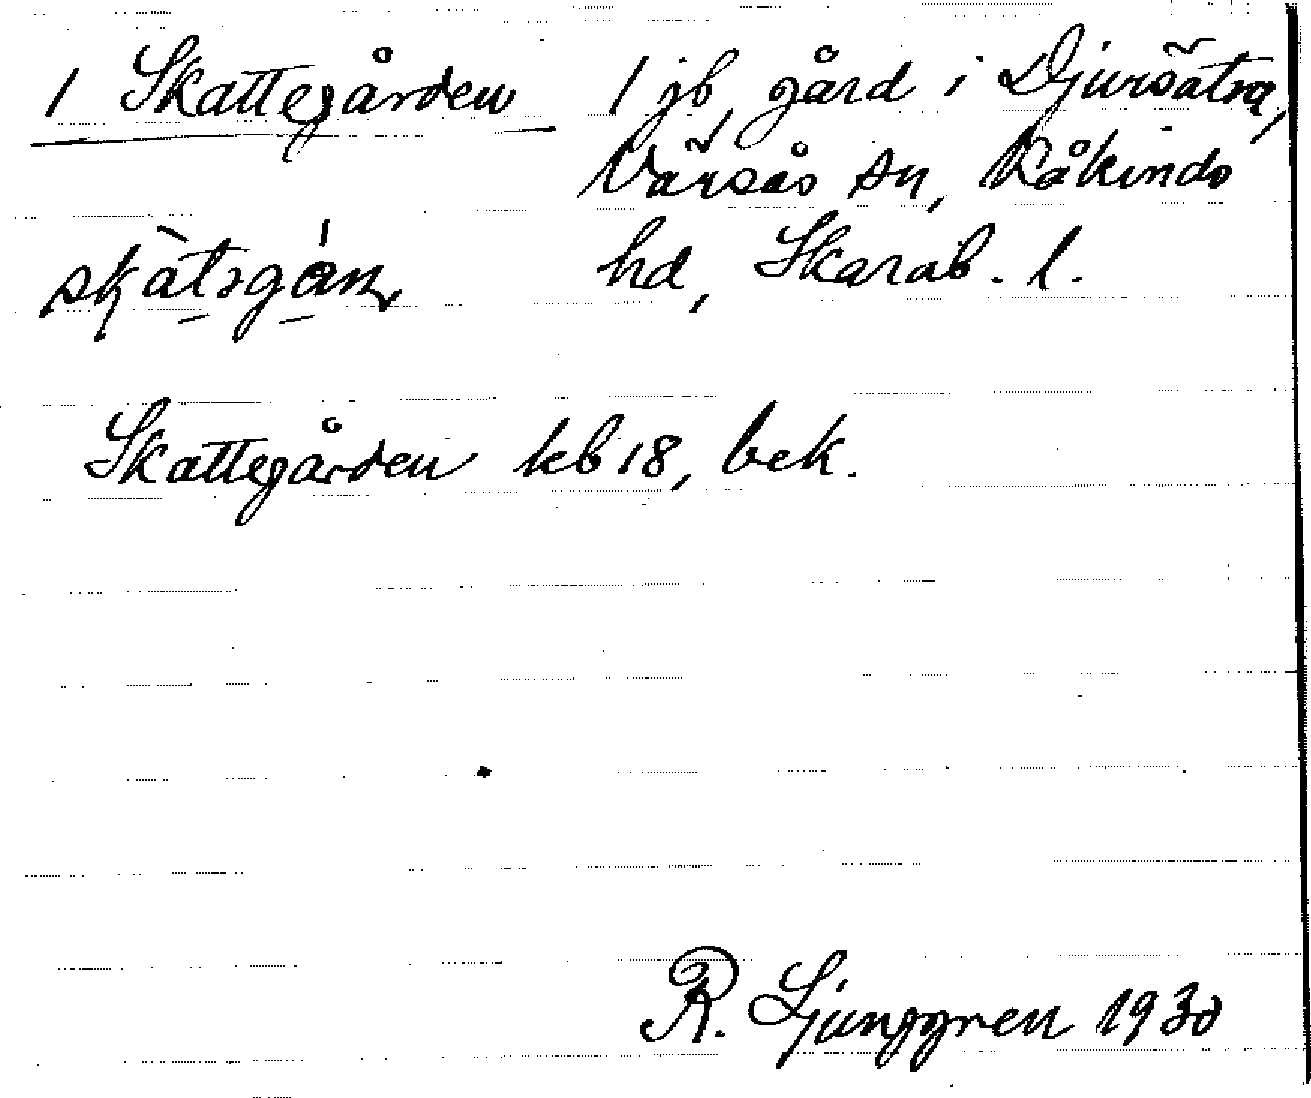 1 Skattegården 1 jb, gård i Djursätra,
Värsås sn, Kåkinds
skàtsgán hd, Skarab. l.
Skattegården kb 18, bek.
R. Ljunggren 1930